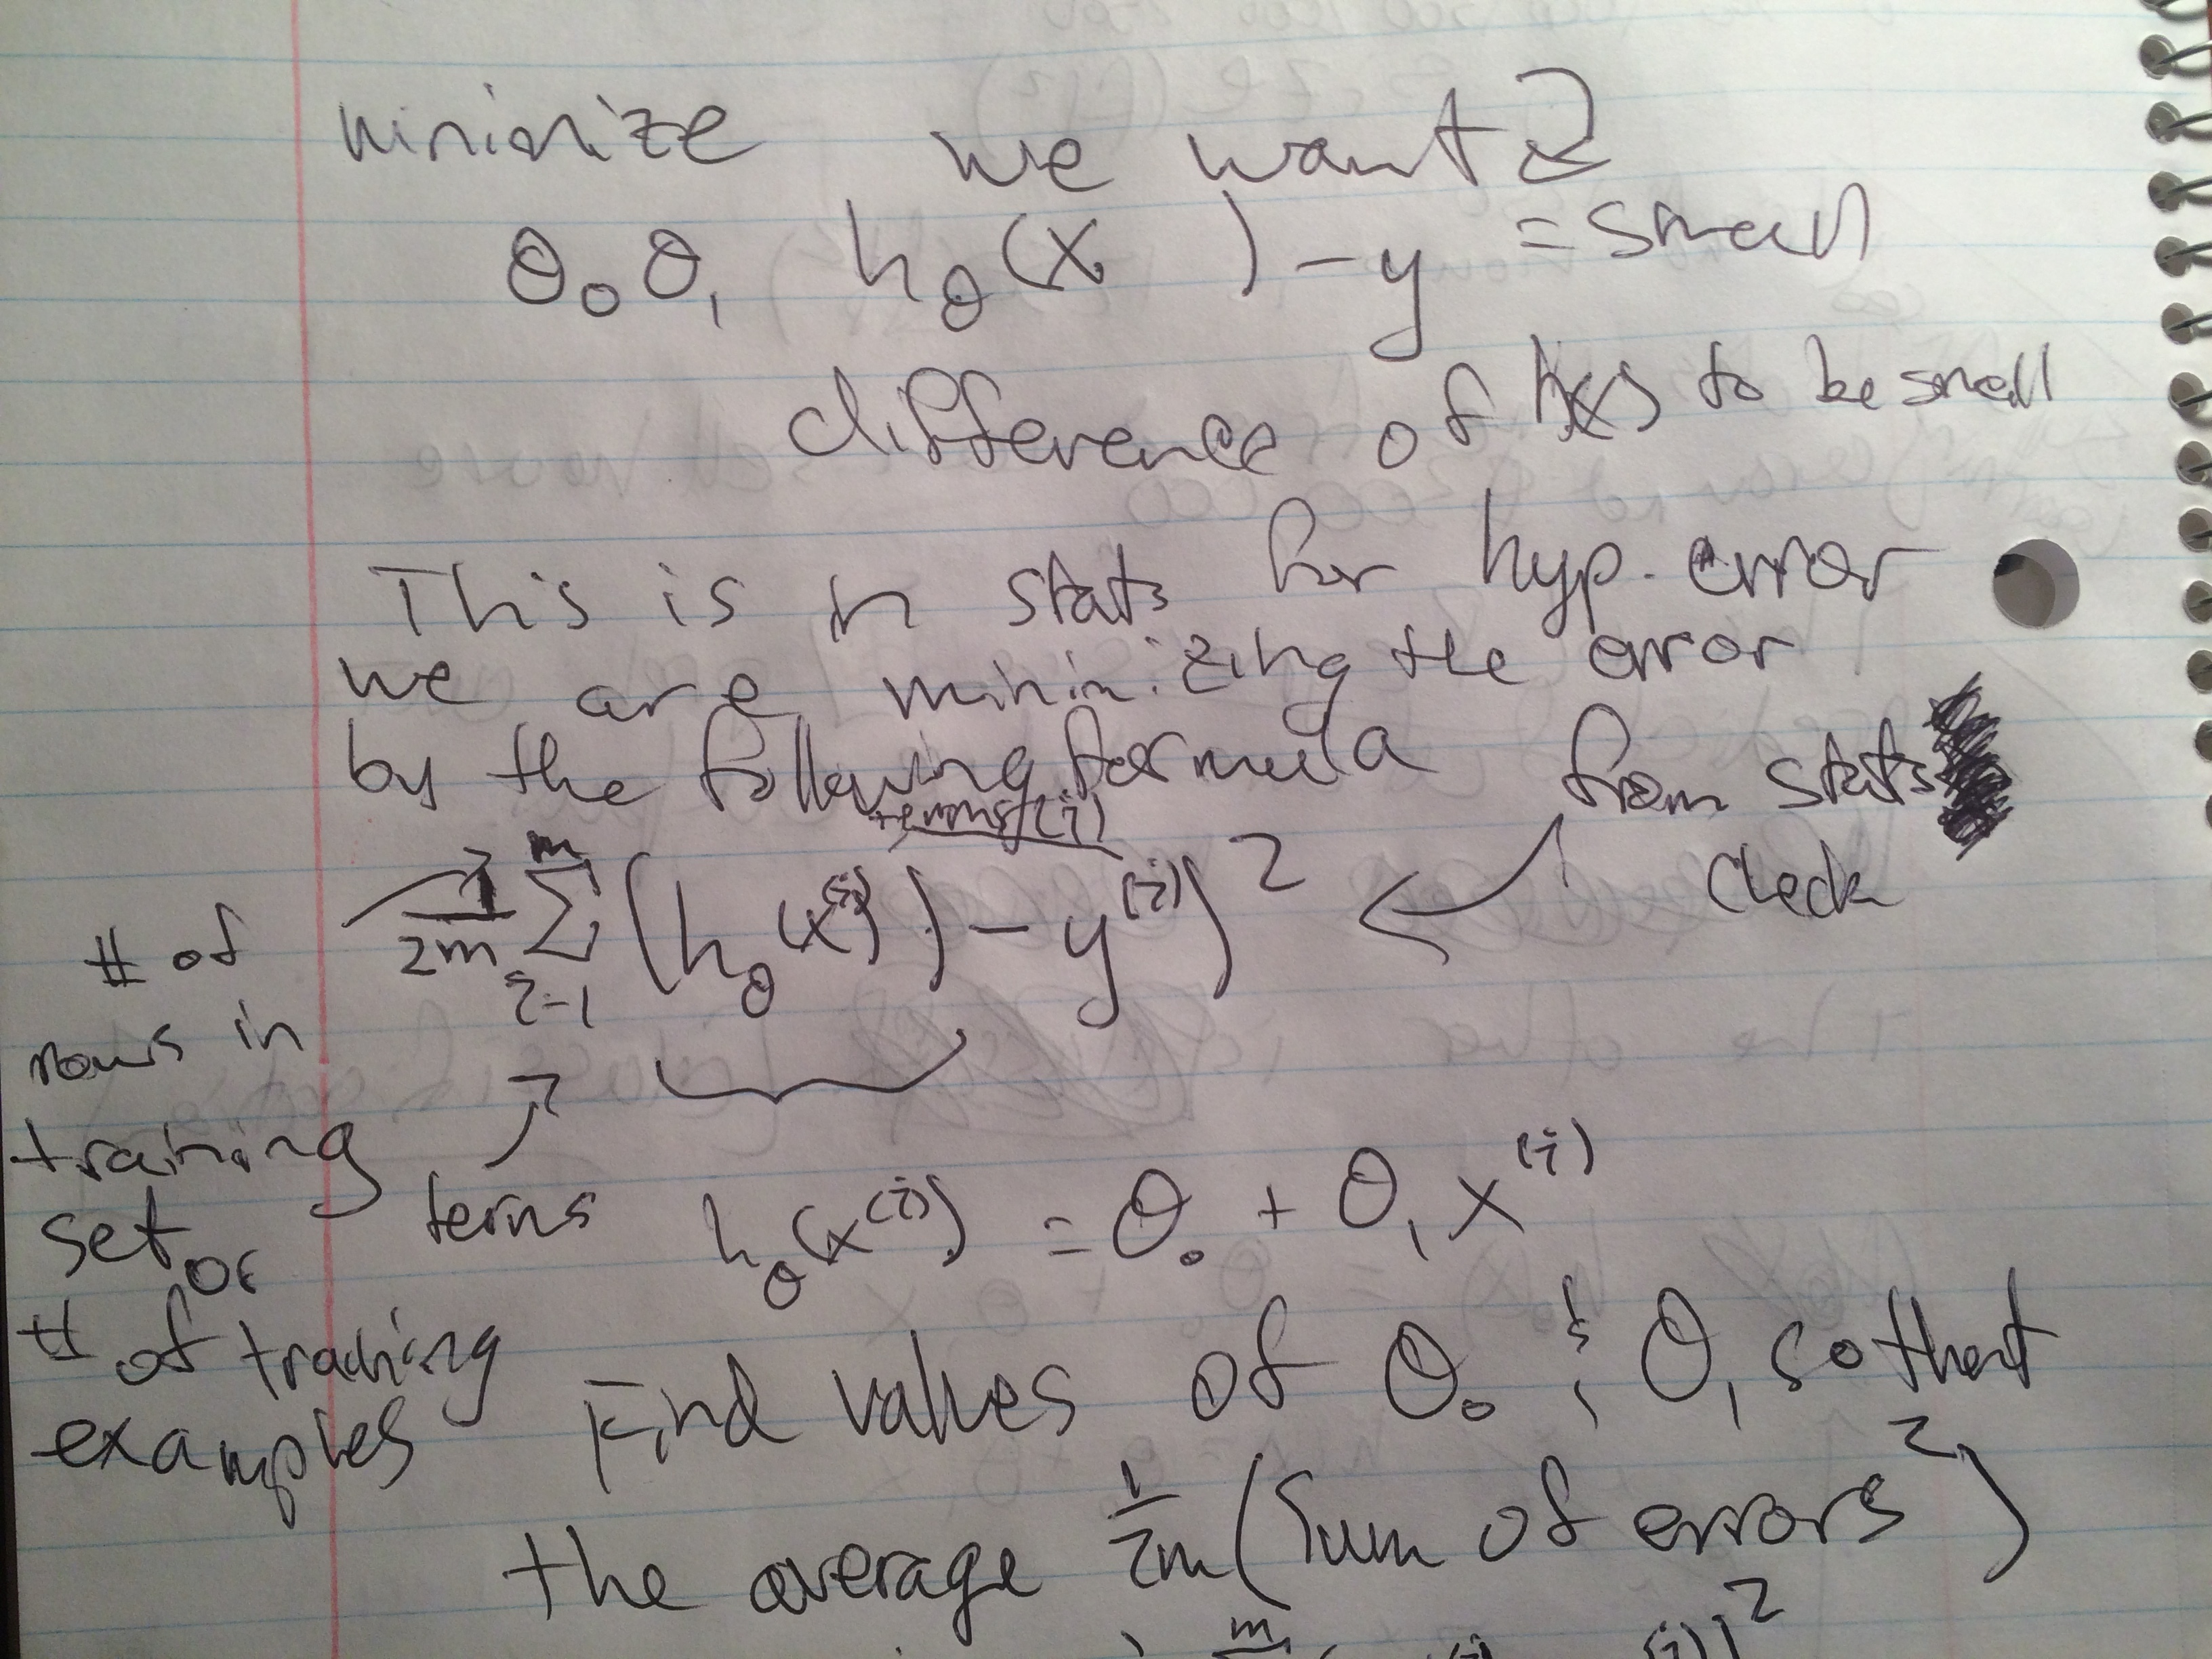 minimize we want
θ₀θ₁ hθ(x ) - y = small
difference of h(x) to be small
This is in stats for hyp. error
we are minimizing the error
by the following formula from stats
terms (i) check
1/2m Σ m i=1 (hθ(x⁽ⁱ⁾) - y⁽ⁱ⁾)²
# of
rows in
training
set or
# of training
examples
terms hθ(x⁽ⁱ⁾) = θ₀ + θ₁x⁽ⁱ⁾
Find values of θ₀ & θ₁ so that
the average 1/2m (Sum of errors²)
m (i) (i))²